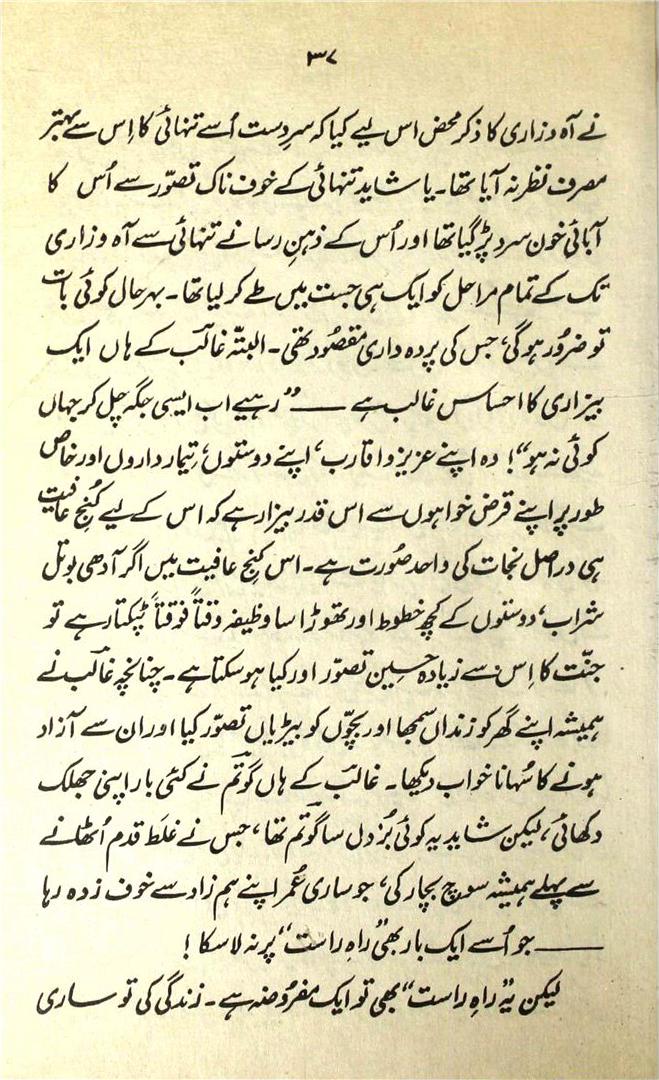 ۳۷
نے آہ و زاری کا ذکر محض اس لیے کیا کہ سرِدست اُسے تنہائی کا اِس سے بہتر
مصرف نظر نہ آیا تھا۔ یا شاید تنہائی کے خوف ناک تصوّر سے اُس کا
آبائی خون سرد پڑ گیا تھا اور اُس کے ذہنِ رسا نے تنہائی سے آہ و زاری
تک کے تمام مراحل کو ایک ہی جست میں طے کر لیا تھا۔ بہرحال کوئی بات
تو ضرُور ہوگی، جس کی پردہ داری مقصُود تھی۔ البتّہ غالبؔ کے ہاں ایک
بیزاری کا احساس غالب ہے —— ”رہیے اب ایسی جگہ چل کر جہاں
کوئی نہ ہو“! وہ اپنے عزیز و اقارب، اپنے دوستوں، تیمار داروں اور خاص
طور پر اپنے قرض خواہوں سے اس قدر بیزار ہے کہ اس کے لیے کُنجِ عافیت
ہی دراصل نجات کی واحد صُورت ہے۔ اس کُنجِ عافیت میں اگر آدھی بوتل
شراب، دوستوں کے کچھ خطوط اور تھوڑا سا وظیفہ وقتاً فوقتاً ٹپکتا رہے تو
جنّت کا اِس سے زیادہ حسین تصوّر اور کیا ہو سکتا ہے۔ چنانچہ غالبؔ نے
ہمیشہ اپنے گھر کو زنداں سمجھا اور بچّوں کو بیڑیاں تصوّر کیا اور ان سے آزاد
ہونے کا سُہانا خواب دیکھا۔ غالبؔ کے ہاں گوتمؔ نے کئی بار اپنی جھلک
دکھائی، لیکن شاید یہ کوئی بُزدل سا گوتمؔ تھا، جس نے غلَط قدم اُٹھانے
سے پہلے ہمیشہ سوچ بچار کی، جو ساری عُمر اپنے ہم زاد سے خوف زدہ رہا
—— جو اُسے ایک بار بھی ”راہِ راست“ پر نہ لا سکا!
لیکن یہ ”راہِ راست“ بھی تو ایک مفرُوضہ ہے۔ زندگی کی تو ساری